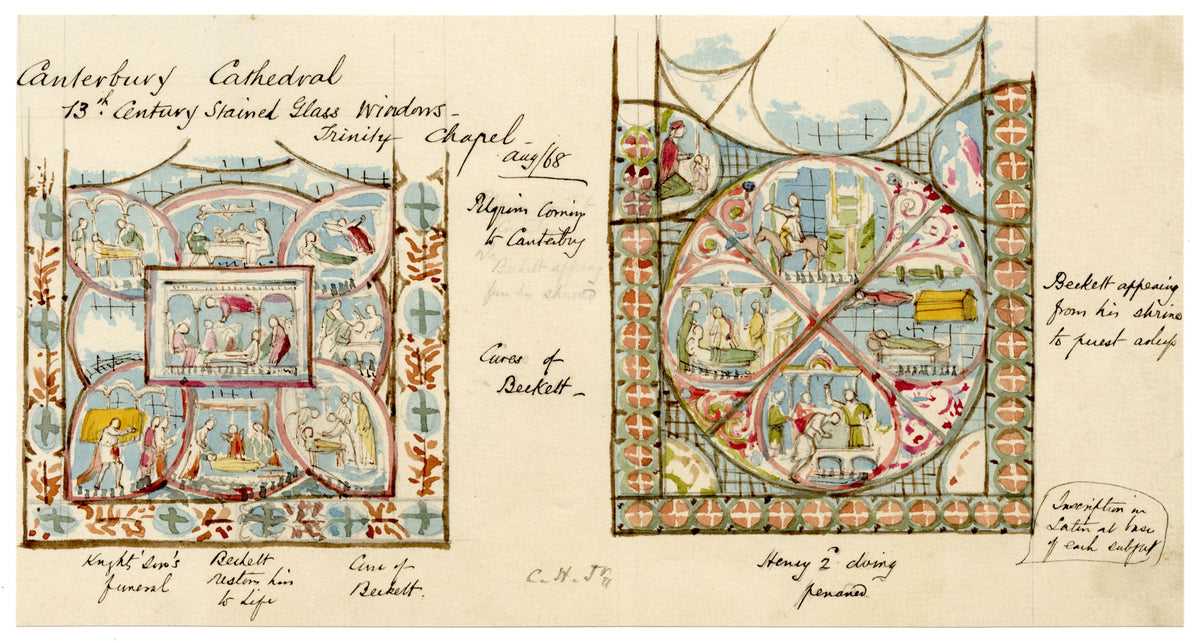 Canterbury Cathedral
13th Century Stained Glass Windows -
Trinity Chapel -
Aug/68
Pilgrim coming
to Canterbury
Beckett appearing
from his shrine
Cures of
Beckett -
Beckett appearing
from his shrine
to priest asleep
Knight's son's
funeral
Beckett
restores him
to Life
Cure of
Beckett.
C. H. Jr.
Henry 2d doing
penance
Inscription in
Latin at base
of each subject